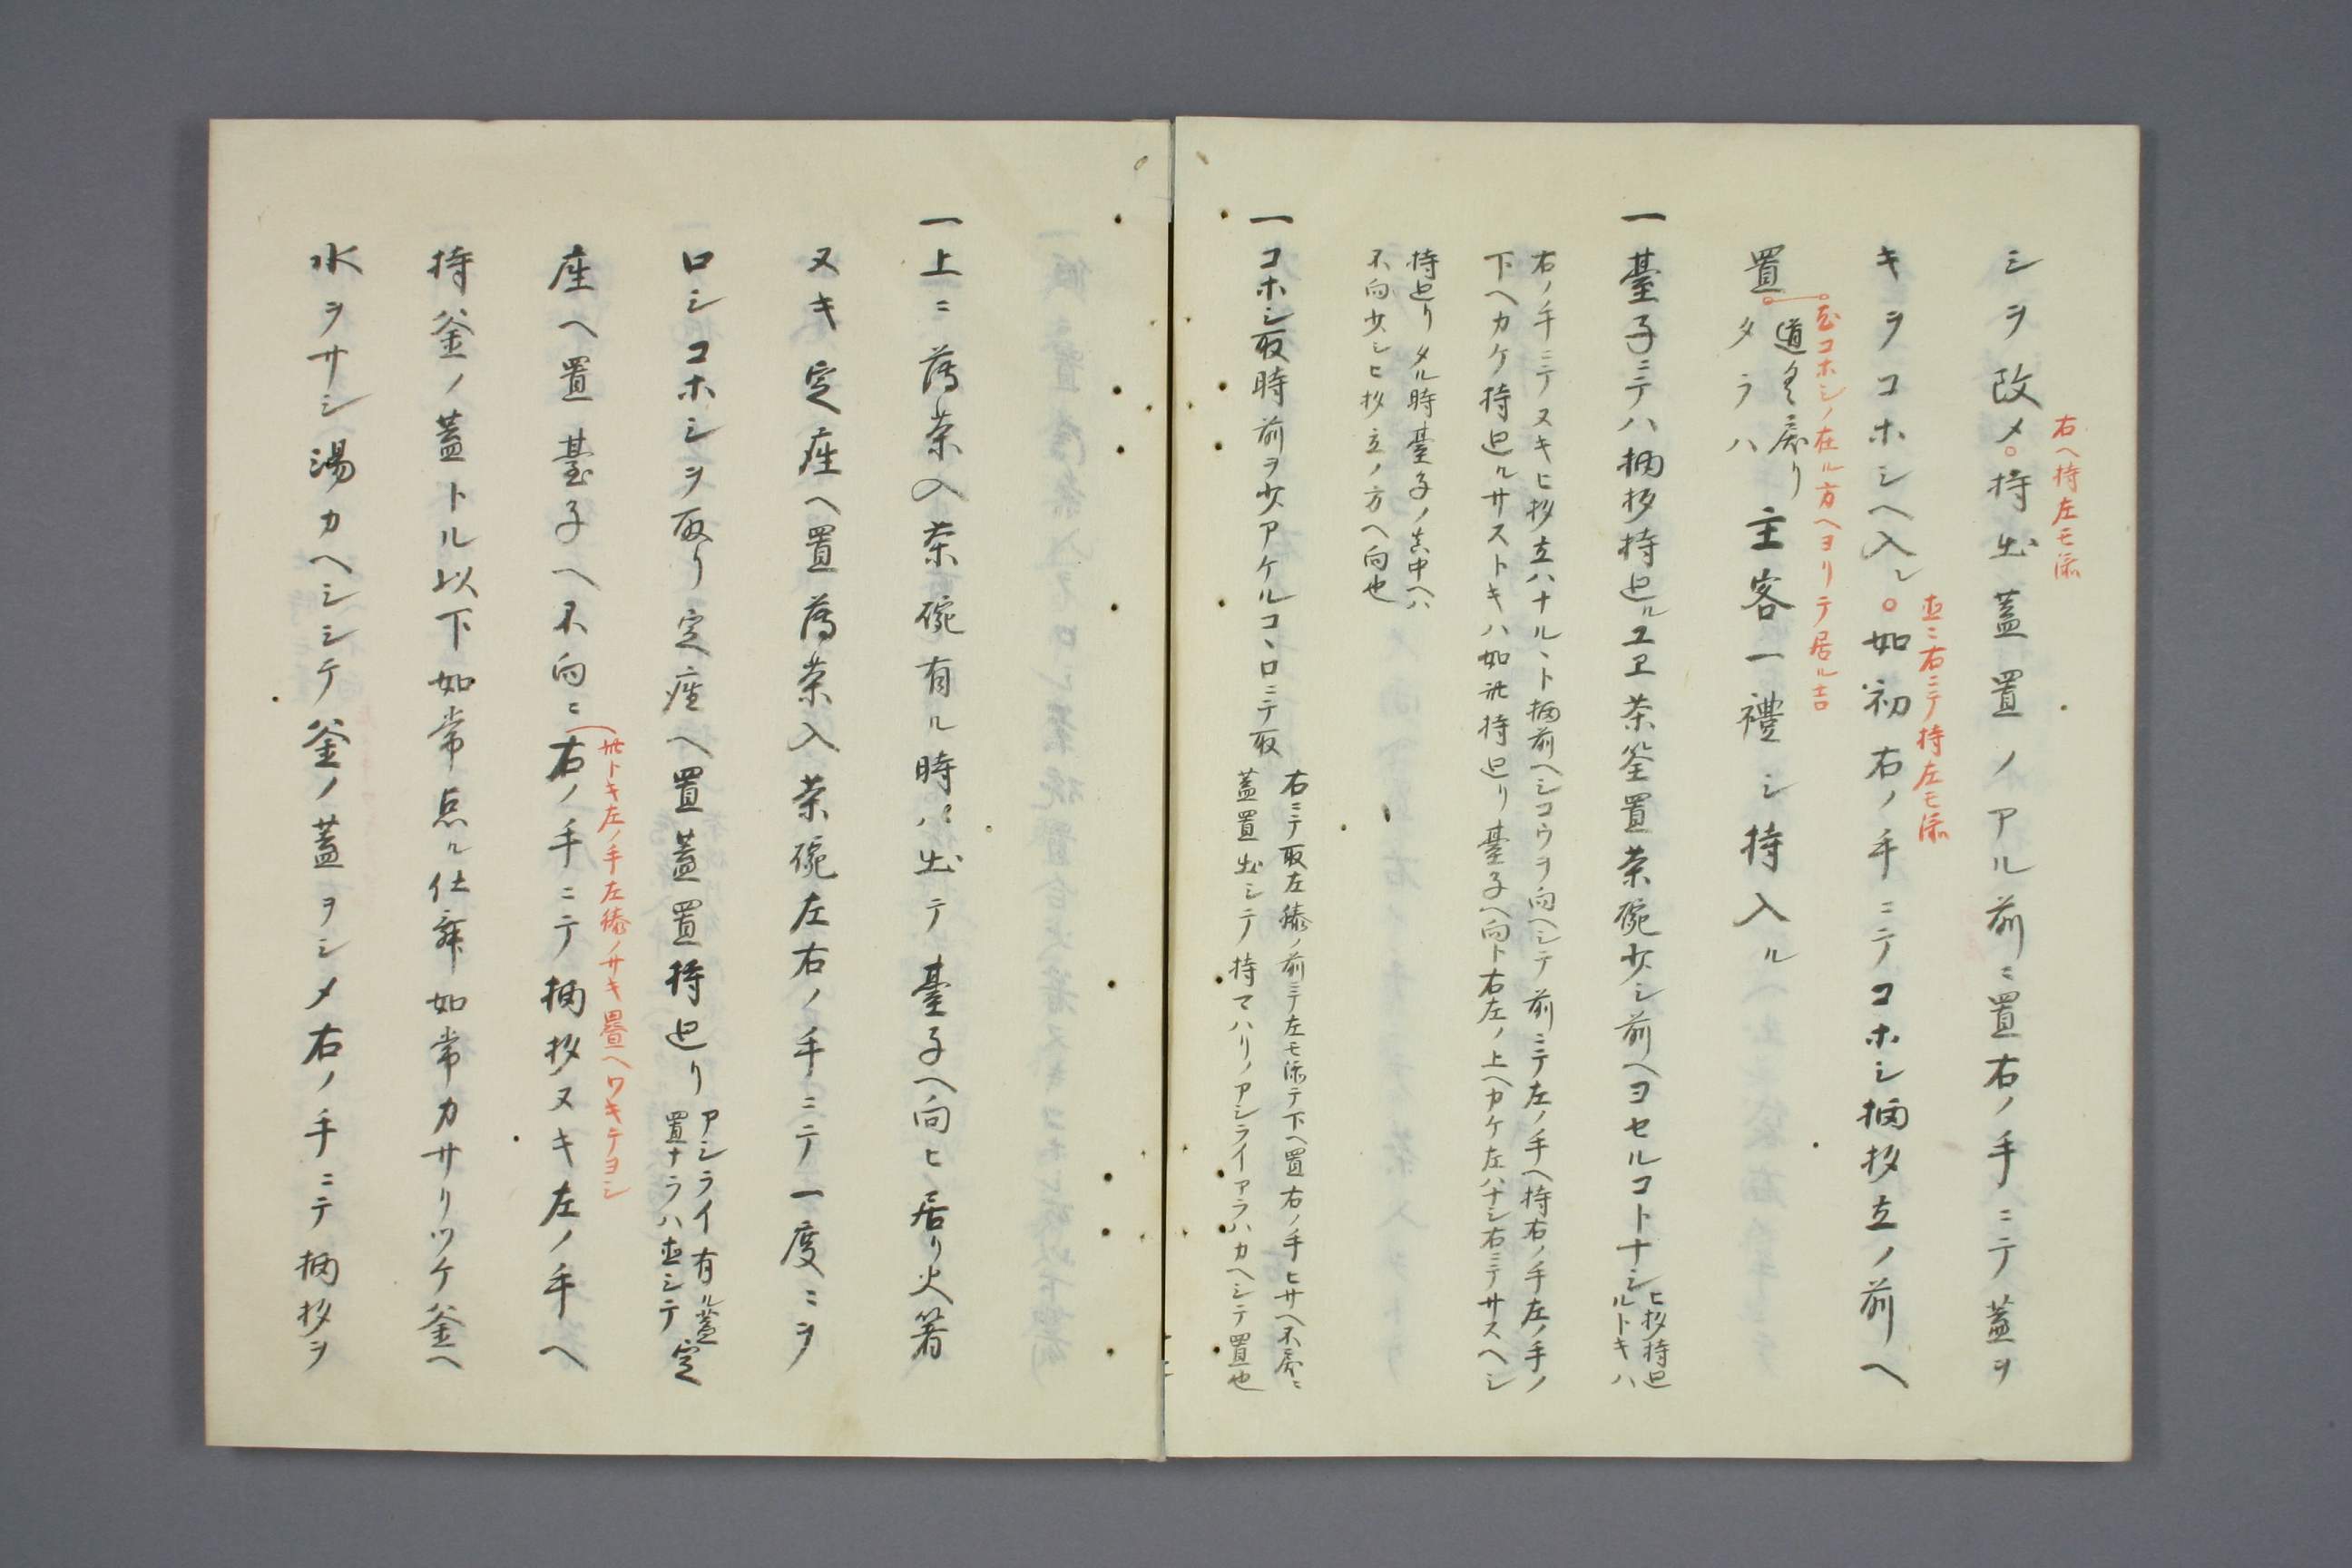 右ヘ持左モ添
シヲ改メ。持出蓋置ノアル前ニ置右ノ手ニテ蓋ヲ
直ニ右ニテ持左モ添
キヲコホシヘ入レ。如初右ノ手ニテコホシ柄杓立ノ前ヘ
若コホシノ在ル方ヘヨリテ居ル吉
置。道具飾リタラハ主客一禮シ持入ル
一臺子ニテハ柄杓持廻ルユヱ茶筌置茶碗少シ前ヘヨセルコトナシヒ杓持廻ルトキハ
右ノ手ニテヌキヒ杓立ハナルヽト柄前ヘシコウヲ向ヘシテ前ニテ左ノ手ヘ持右ノ手左ノ手ノ
下ヘカケ持廻ルサストキハ如此持廻リ臺子ヘ向ト右左ノ上ヘカケ左ハナシ右ニテサスヘシ
持廻リタル時臺子ノ真中ヘハ
不向少シヒ杓立ノ方ヘ向也
一コホシ取時前ヲ少アケルコヽロニテ取
右ニテ取左膝ノ前ニテ左モ添テ下ヘ置右ノ手ヒサヘ不戻ニ
蓋置出シテ持マハリノアシライアラハカヘシテ置也
一上ニ薄茶入茶碗有ル時ハ出テ臺子ヘ向ヒ居リ火箸
ヌキ定座ヘ置薄茶入茶碗左右ノ手ニテ一度ニヲ
ロシコホシヲ取リ定座ヘ置蓋置持廻リアシライ有ル蓋置ナラハ直シテ定
此トキ左ノ手左膝ノサキ畳ヘワキテヨシ
座ヘ置臺子ヘ不向ニ右ノ手ニテ柄杓ヌキ左ノ手ヘ
持釜ノ蓋トル以下如常点ル仕舞如常カサリツケ釜ヘ
水ヲサシ湯カヘシシテ釜ノ蓋ヲシメ右ノ手ニテ柄杓ヲ